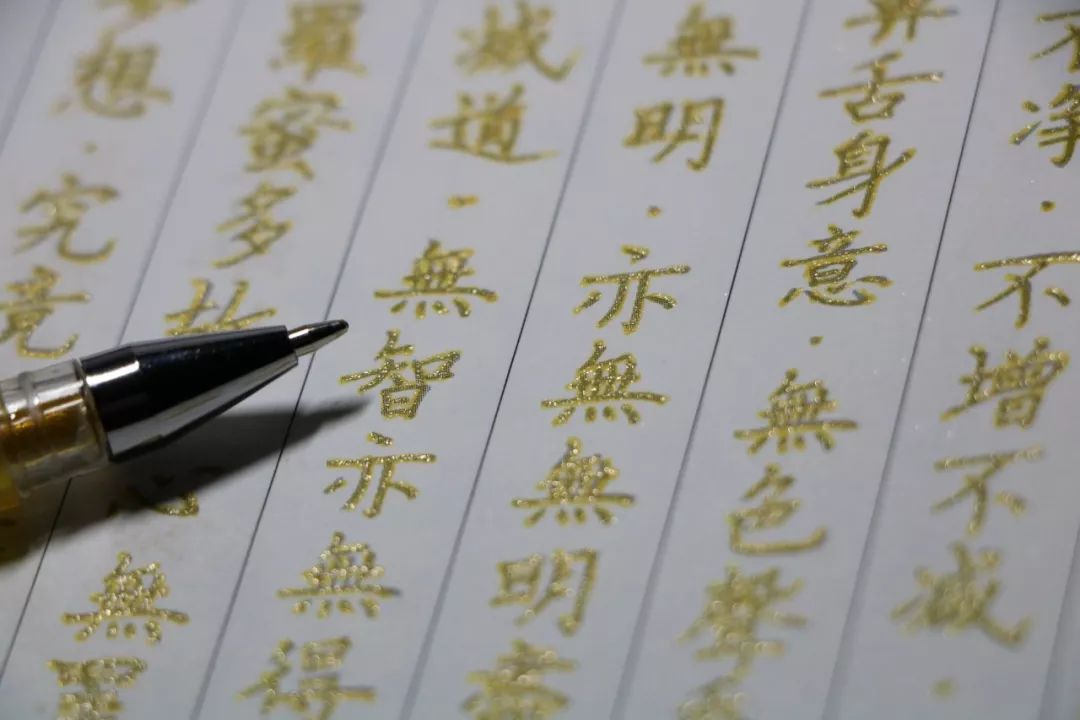 不淨·不增不減·
舌身意·無色聲
無明·亦無無明盡
滅道·無智亦無得
羅蜜多故心無罣
想·究竟